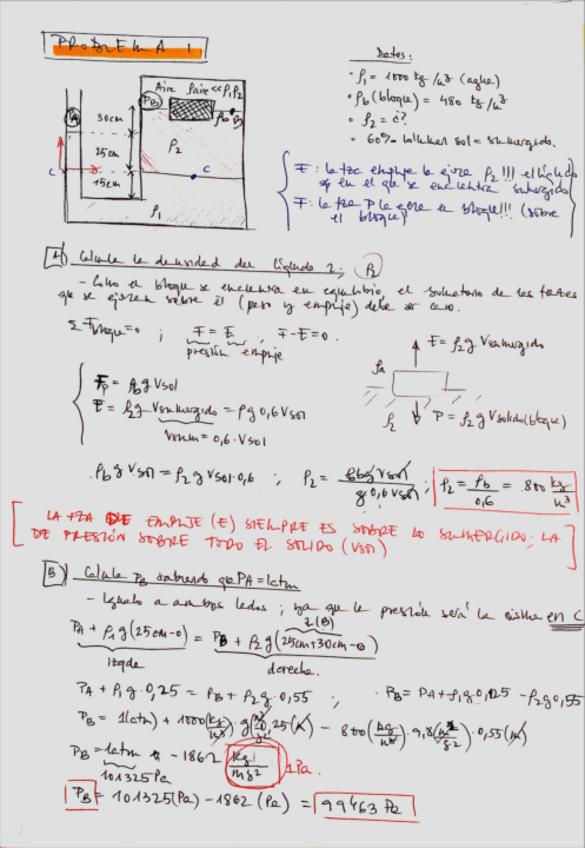 PROBLEMA 1
Datos:
• ρ₁ = 1000 kg/m³ (agua)
• ρb (bloque) = 480 kg/m³
• ρ₂ = ¿?
• 60% volumen sol = sumergido.
Aire ρaire << ρ₁ρ₂
PA
PB
30cm
25cm
15cm
ρ₂
C
C
ρ₁
E: la fza empuje la ejerce ρ₂!!! el líquido
en el que se encuentra sumergido
F: la fza P la ejerce el bloque!!! (sobre
el bloque)
A) Calcule la densidad del líquido 2; ρ₂
- Como el bloque se encuentra en equilibrio, el sumatorio de las fuerzas
que se ejercen sobre él (peso y empuje) debe ser cero.
ΣFbloque=0 ; F = E , F-E=0.
presión empuje
Fp = ρb g Vsol
E = ρ₂g Vsumergido = ρg 0,6 Vsol
Vsum = 0,6 · Vsol
E= ρ₂g Vsumergido
ρa
ρ₂
P = ρ₂ g Vsolido(bloque)
ρb g Vsol = ρ₂ g Vsol·0,6 ; ρ₂ = ρb g Vsol / g 0,6 Vsol ; ρ₂ = ρb / 0,6 = 800 kg/m³
LA FZA DE EMPUJE (E) SIEMPRE ES SOBRE LO SUMERGIDO; LA
DE PRESIÓN SOBRE TODO EL SOLIDO (VSOL)
B) Calcule PB sabiendo que PA=1atm
- Igualo a ambos lados ; ya que la presión será la misma en C
z(B)
PA + ρ₁g(25cm-0) = PB + ρ₂g(25cm+30cm-0)
izqda
derecha.
PA + ρ₁g·0,25 = PB + ρ₂g·0,55 ; PB= PA+ρ₁g0,25 -ρ₂g0,55
PB = 1(atm) + 1000(kg/m³)·g 25(m) - 800(kg/m³)·9,8(m/s²)·0,55(m)
PB = 1atm - 1862 kg/ms² 1Pa.
101325Pa
PB = 101325(Pa) -1862 (Pa) = 99463 Pa